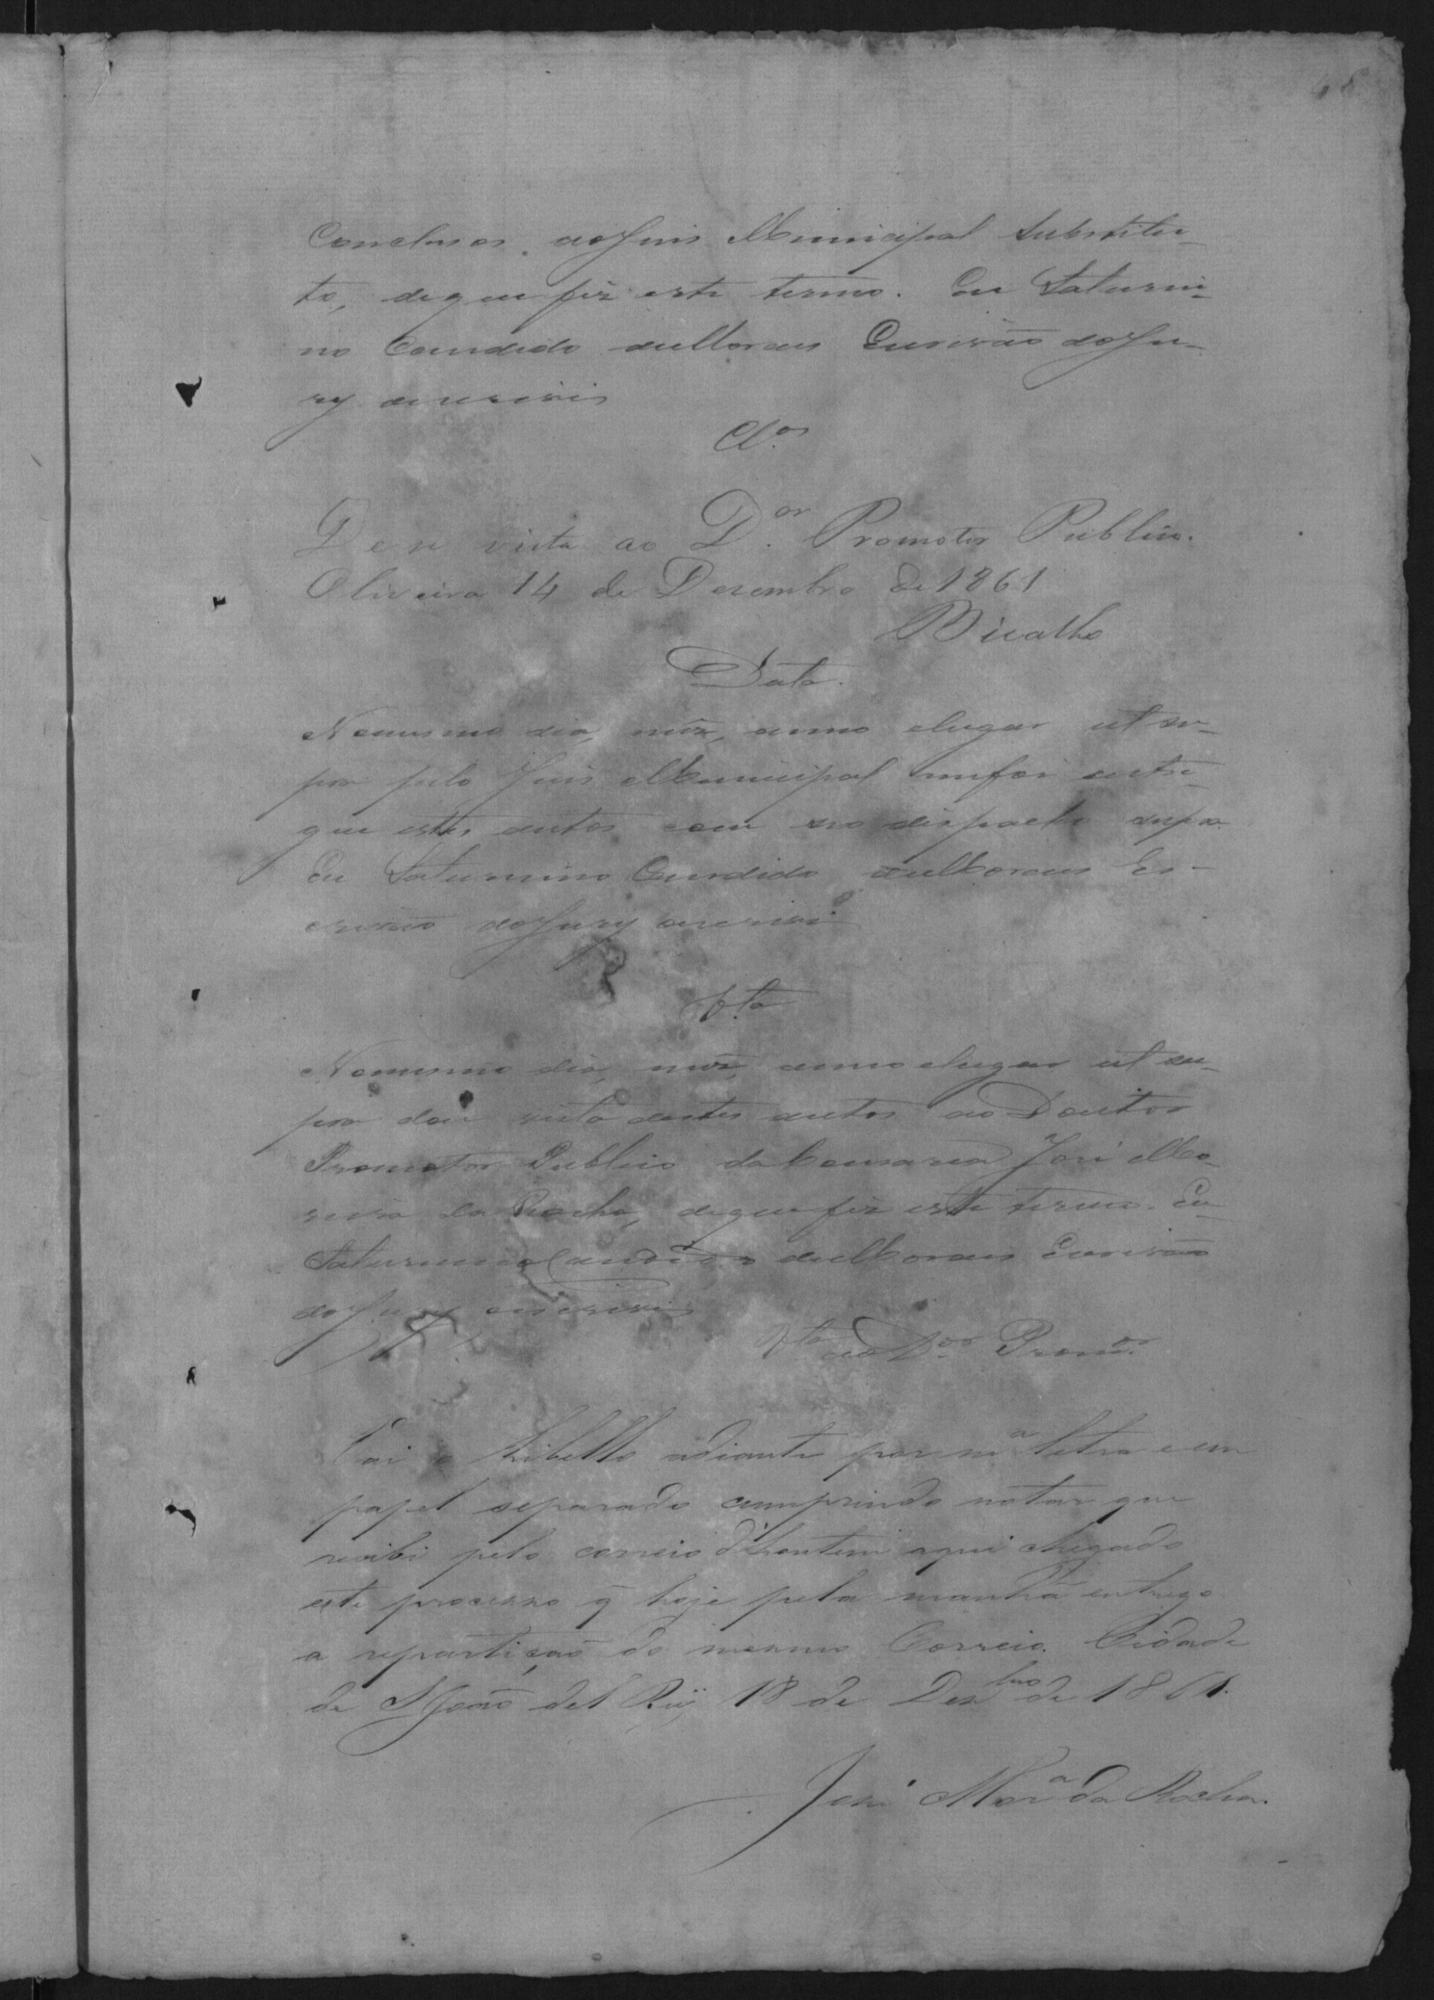 Conclusos ao Juis Municipal Substitu-
to, de que fiz este termo. Eu Saturni-
no Candido de Moraes Escrivão do Ju-
ry escrivi
Cl.os
Den vista ao D.or Promotor Publico.
Oliveira 14 de Dezembro de 1861
Bicalho
Data.
No mesmo dia, mez, anno e lugar ut su-
pra pelo Juis Municipal me foi entre-
gue estes autos com seo dispacho supra
Eu Saturnino Candido de Moraes Es-
crivão do Jury escrivi
V.ta
No mesmo dia, mez, anno e lugar ut su-
pra dou vista destes autos ao Doutor
Promotor Publico da Comarca José Mo-
reira da Rocha, de que fiz este termo. Eu
Saturnino Candido de Moraes Escrivão
do Jury escrivi
V.ta ao D.or Prom.or
Vai o Libello adiante por m.a letra e em
papel separado cumprindo notar que
recibi pelo correio d'hontem aqui chegado
este processo q̃ hoje pela manhã entrego
a repartição do mesmo Correio. Cidade
de S João del Rei 18 de Dez.bro de 1861.
José Mor.a da Rocha.